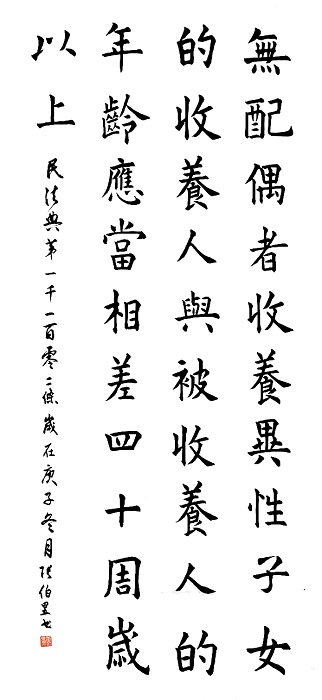 無配偶者收養異性子女
的收養人與被收養人的
年齡應當相差四十周歲
以上
民法典第一千一百零二條歲在庚子冬月張伯昱書